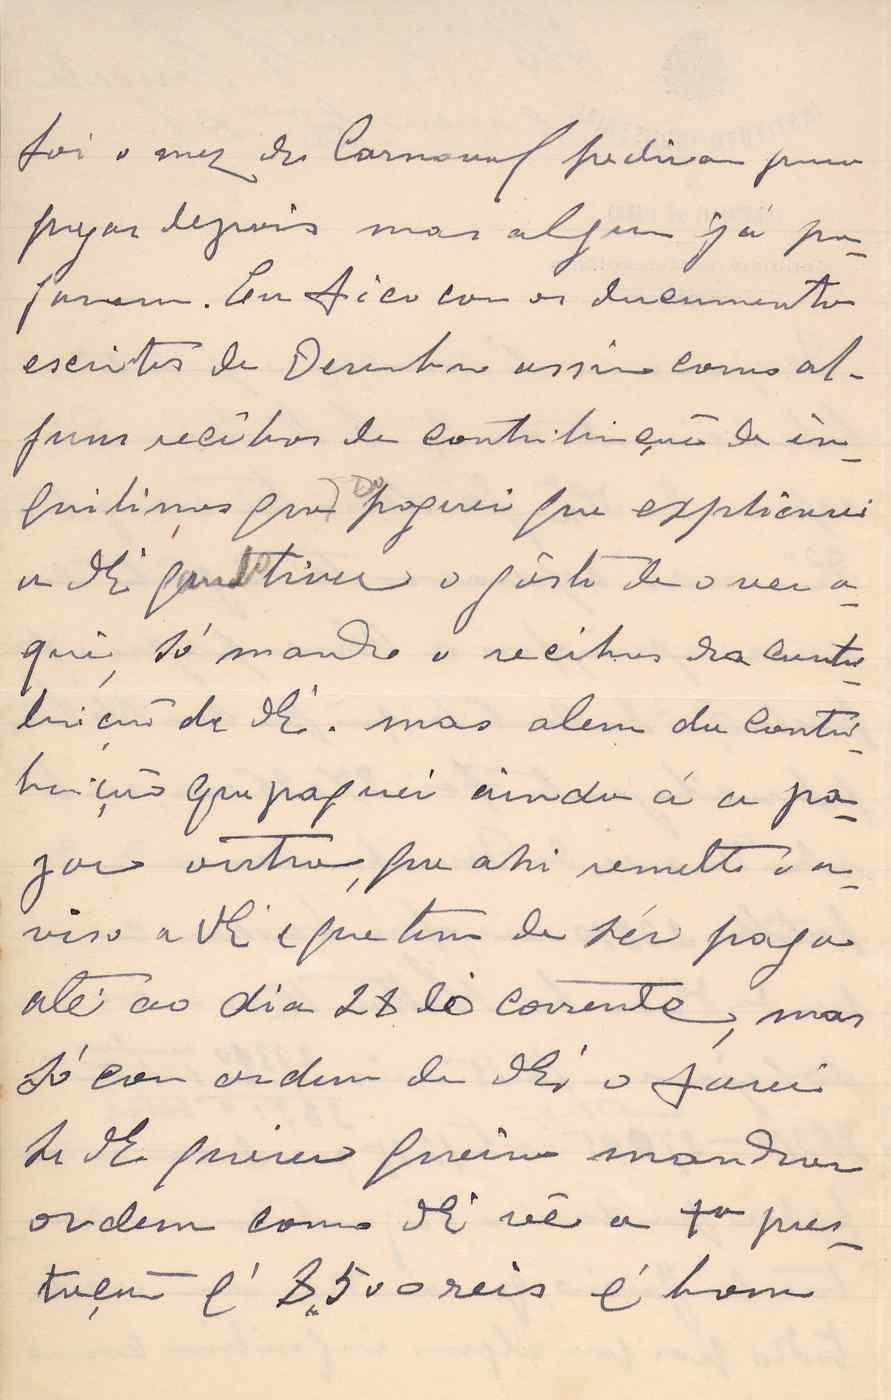 foi o mez do Carnaval pediram para
pagar depois mas algum já pa-
garam. Eu fico com os documentos
escritos de Dezembro assim como al-
guns recibos de contribuição de in-
quilinos que paguei que explicarei
a VE quando tiver o gôsto de o ver a-
qui, só mando o recibos da contri-
buição de VE. mas alem da contri-
buição que paguei ainda á a pa-
gar outra, que ahi remetto o a-
viso a VE e que tem de sér pago
até ao dia 28 do corrente, mas
só com ordem de VE o farei
se VE quizer queira mandar
ordem como VE vê a pres-
tação é 8,500 reis é bom